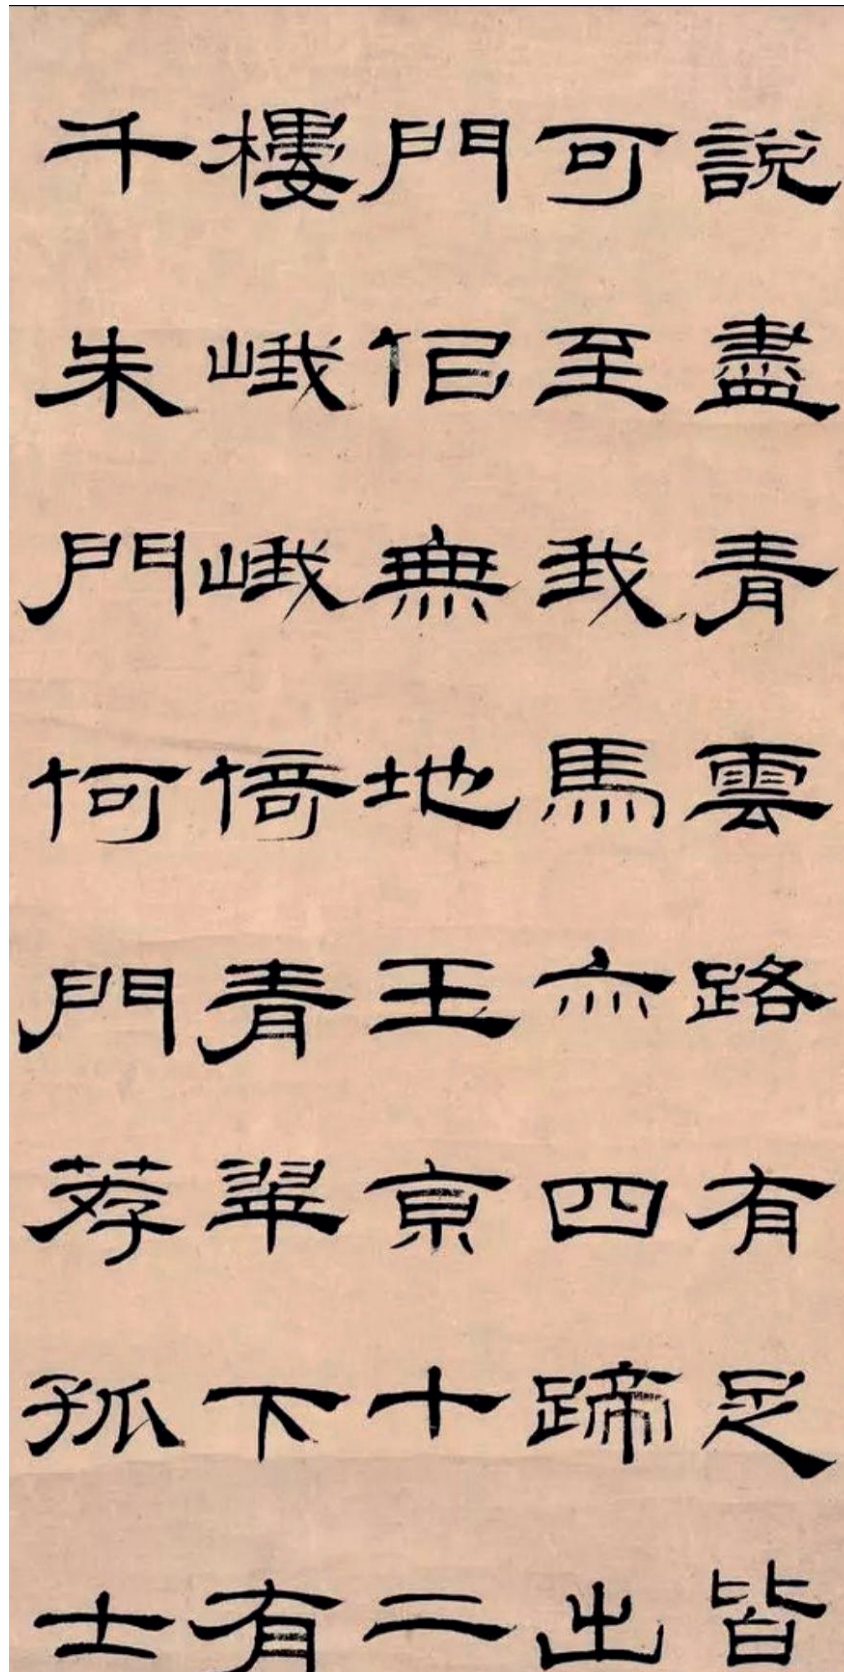 說盡青雲路有足皆
可至我馬亦四蹄出
門佀無地玉京十二
樓峨峨倚青翠下有
千朱門何門荐孤士